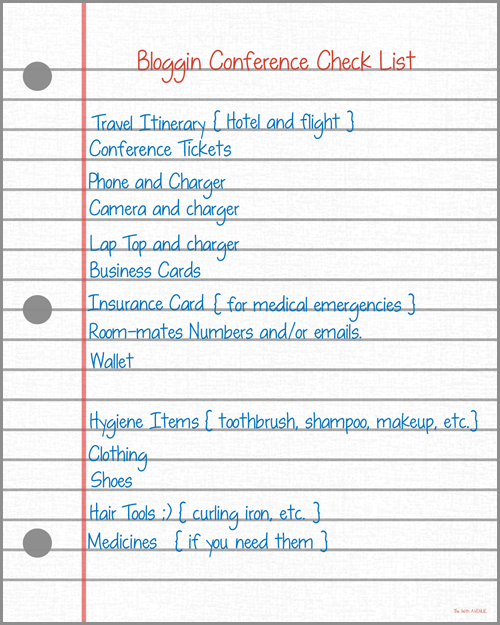 Bloggin Conference Check List
Travel Itinerary { Hotel and flight }
Conference Tickets
Phone and Charger
Camera and charger
Lap Top and charger
Business Cards
Insurance Card { for medical emergencies }
Room-mates Numbers and/or emails.
Wallet
Hygiene Items { toothbrush, shampoo, makeup, etc.}
Clothing
Shoes
Hair Tools :) { curling iron, etc. }
Medicines { if you need them }